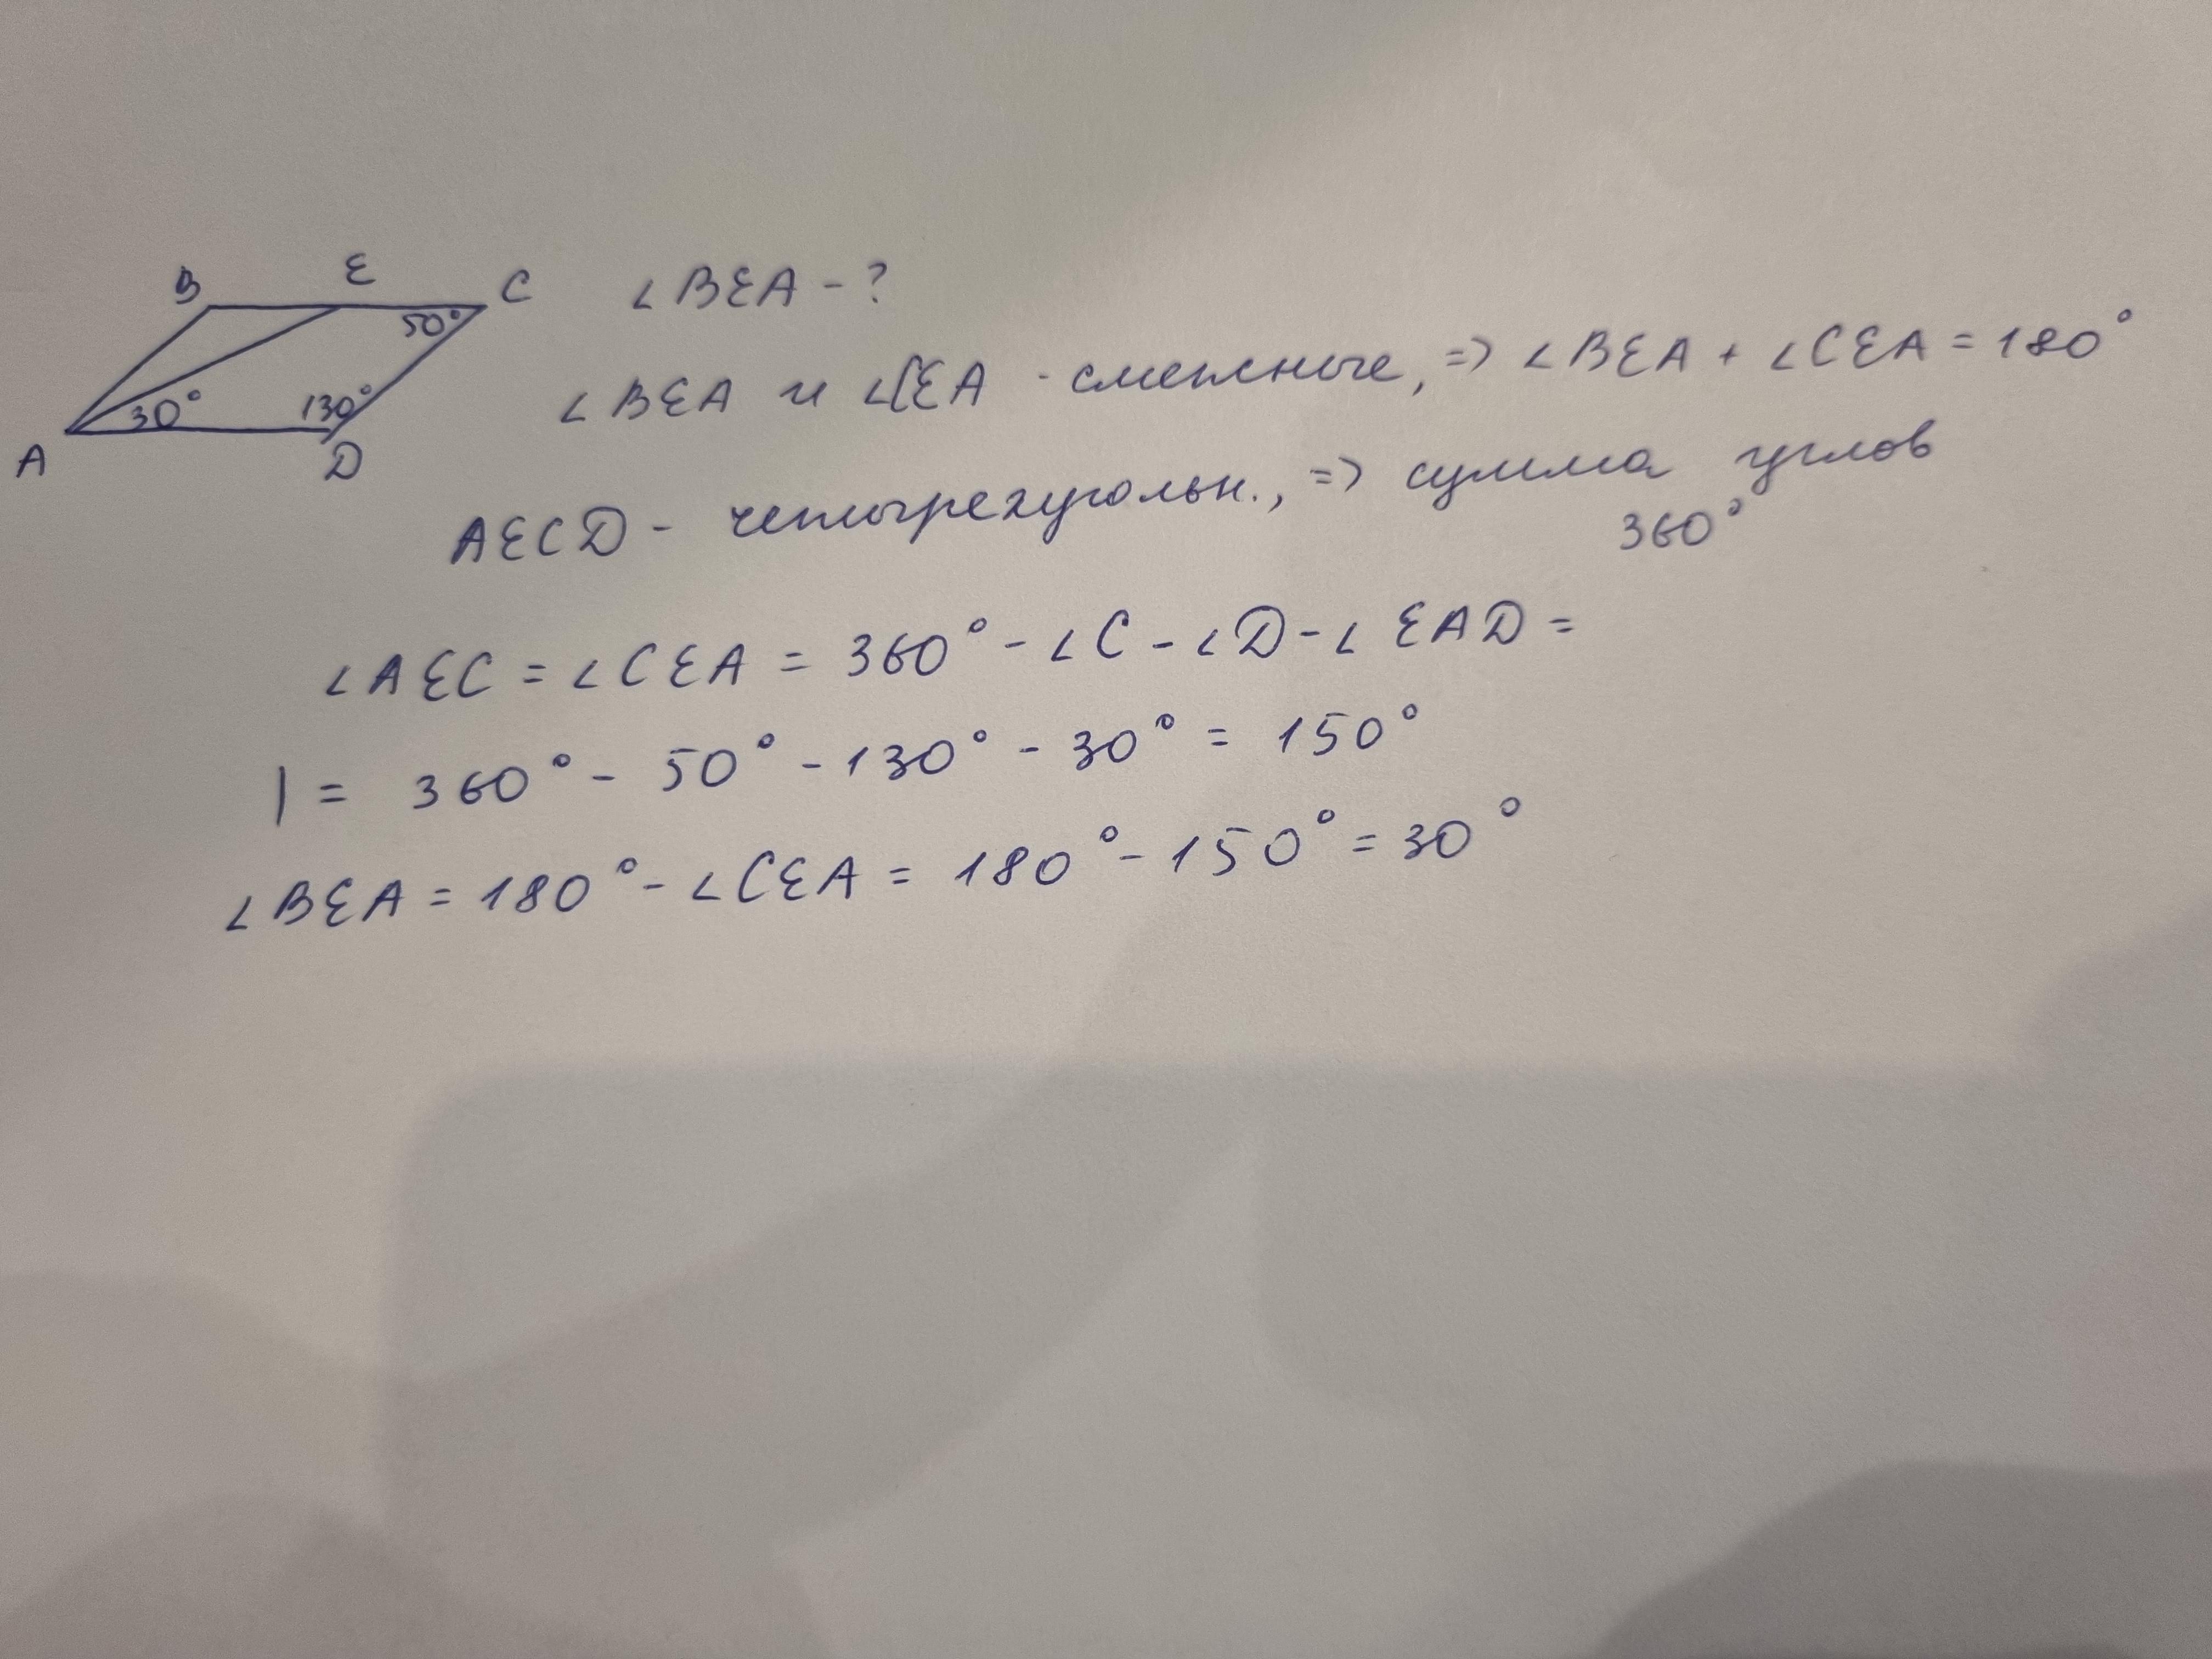 B E C ∠BEA - ?
50°
30° 130°
A D
∠BEA и ∠CEA - смежные, => ∠BEA + ∠CEA = 180°
AECD - четырехугольн., => сумма углов
360°
∠AEC = ∠CEA = 360° - ∠C - ∠D - ∠EAD =
|= 360° - 50° - 130° - 30° = 150°
∠BEA = 180° - ∠CEA = 180° - 150° = 30°